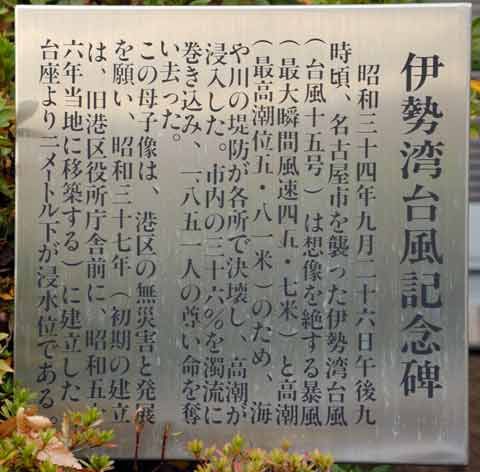 伊勢湾台風記念碑
昭和三十四年九月二十六日午後九
時頃、名古屋市を襲った伊勢湾台風
(台風十五号)は想像を絶する暴風
(最大瞬間風速四五・七米)と高潮
(最高潮位五・八一米)のため、海
や川の堤防が各所で決壊し、高潮が
浸入した。市内の三十六%を濁流に
巻き込み、一八五一人の尊い命を奪
い去った。
この母子像は、港区の無災害と発展
を願い、昭和三十七年(初期の建立
は、旧港区役所庁舎前に、昭和五十
六年当地に移築する)に建立した。
台座より一メートル下が浸水位である。